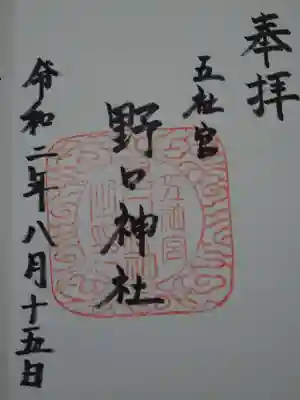 奉拝
五社宮
野口神社
令和二年八月十五日